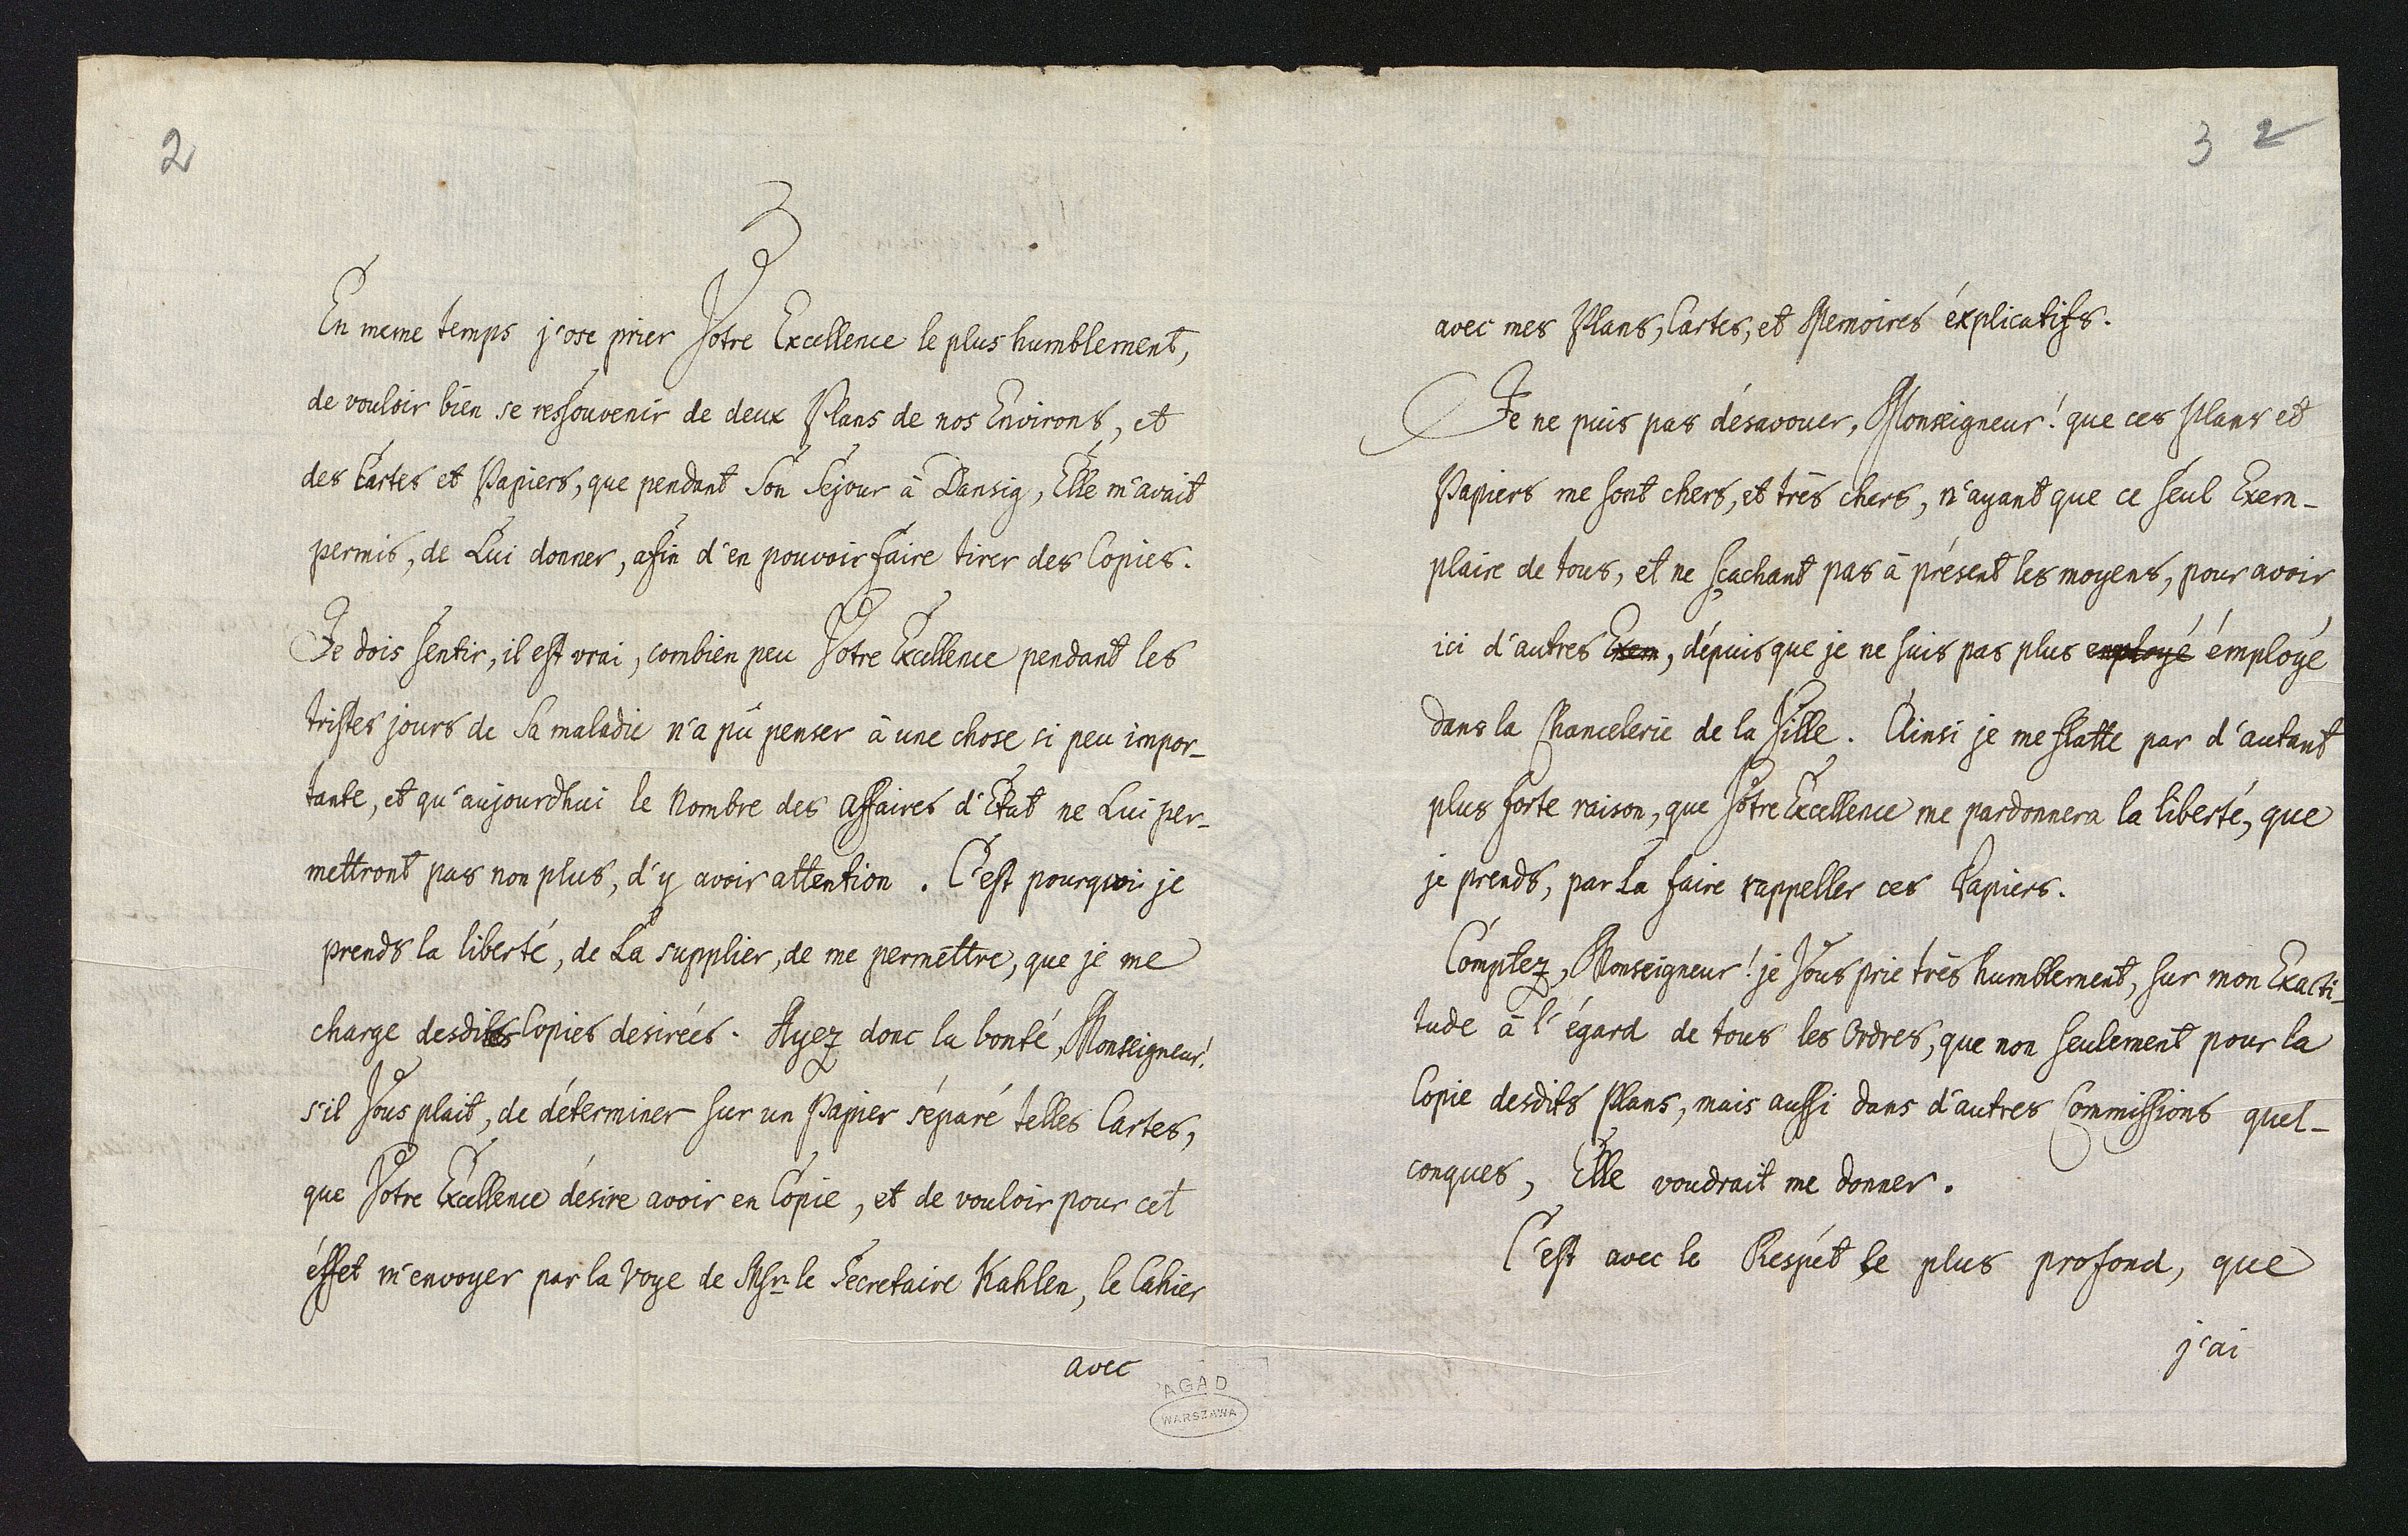 2
En meme temps j'ose prier Votre Excellence le plus humblement,
de vouloir bien se ressouvenir de deux Plans de nos Environs, et
des Cartes et Papiers, que pendant Son Sejour à Dansig, Elle m'avait
permis, de Lui donner, afin d'en pouvoir faire tirer des Copies.
Je dois sentir, il est vrai, combien peu Votre Excellence pendant les
tristes jours de Sa maladie n'a pû penser à une chose si peu impor-
tante, et qu'aujourdhui le Nombre des Affaires d'Etat ne Lui per-
mettront pas non plus, d'y avoir attention. C'est pourquoi je
prends la liberté, de La supplier, de me permettre, que je me
charge desdites Copies desirées. Ayez donc la bonté, Monseigneur!
s'il Vous plait, de déterminer sur un Papier séparé telles Cartes,
que Votre Excellence désire avoir en Copie, et de vouloir pour cet
éffet m'envoyer par la Voye de Msr. le Secretaire Kahlen, le Cahier
avec
AGAD
WARSZAWA
3 2
avec mes Plans, Cartes, et Memoires éxplicatifs.
Je ne puis pas désavouer, Monseigneur! que ces Plans et
Papiers me sont chers, et très chers, n'ayant que ce seul Exem-
plaire de tous, et ne sçachant pas à présent les moyens, pour avoir
ici d'autres Exem, dépuis que je ne suis pas plus employé émployé
dans la Chancelerie de la Ville. Ainsi je me flatte par d'autant
plus forte raison, que Votre Excellence me pardonnera la liberté, que
je prends, par La faire rappeller ces Papiers.
Comptez, Monseigneur! je Vous prie très humblement, sur mon Exacti-
tude à l'égard de tous les Ordres, que non seulement pour la
Copie desdits Plans, mais aussi dans d'autres Commissions quel-
conques, Elle voudrait me donner.
C'est avec le Respét le plus profond, que
j'ai